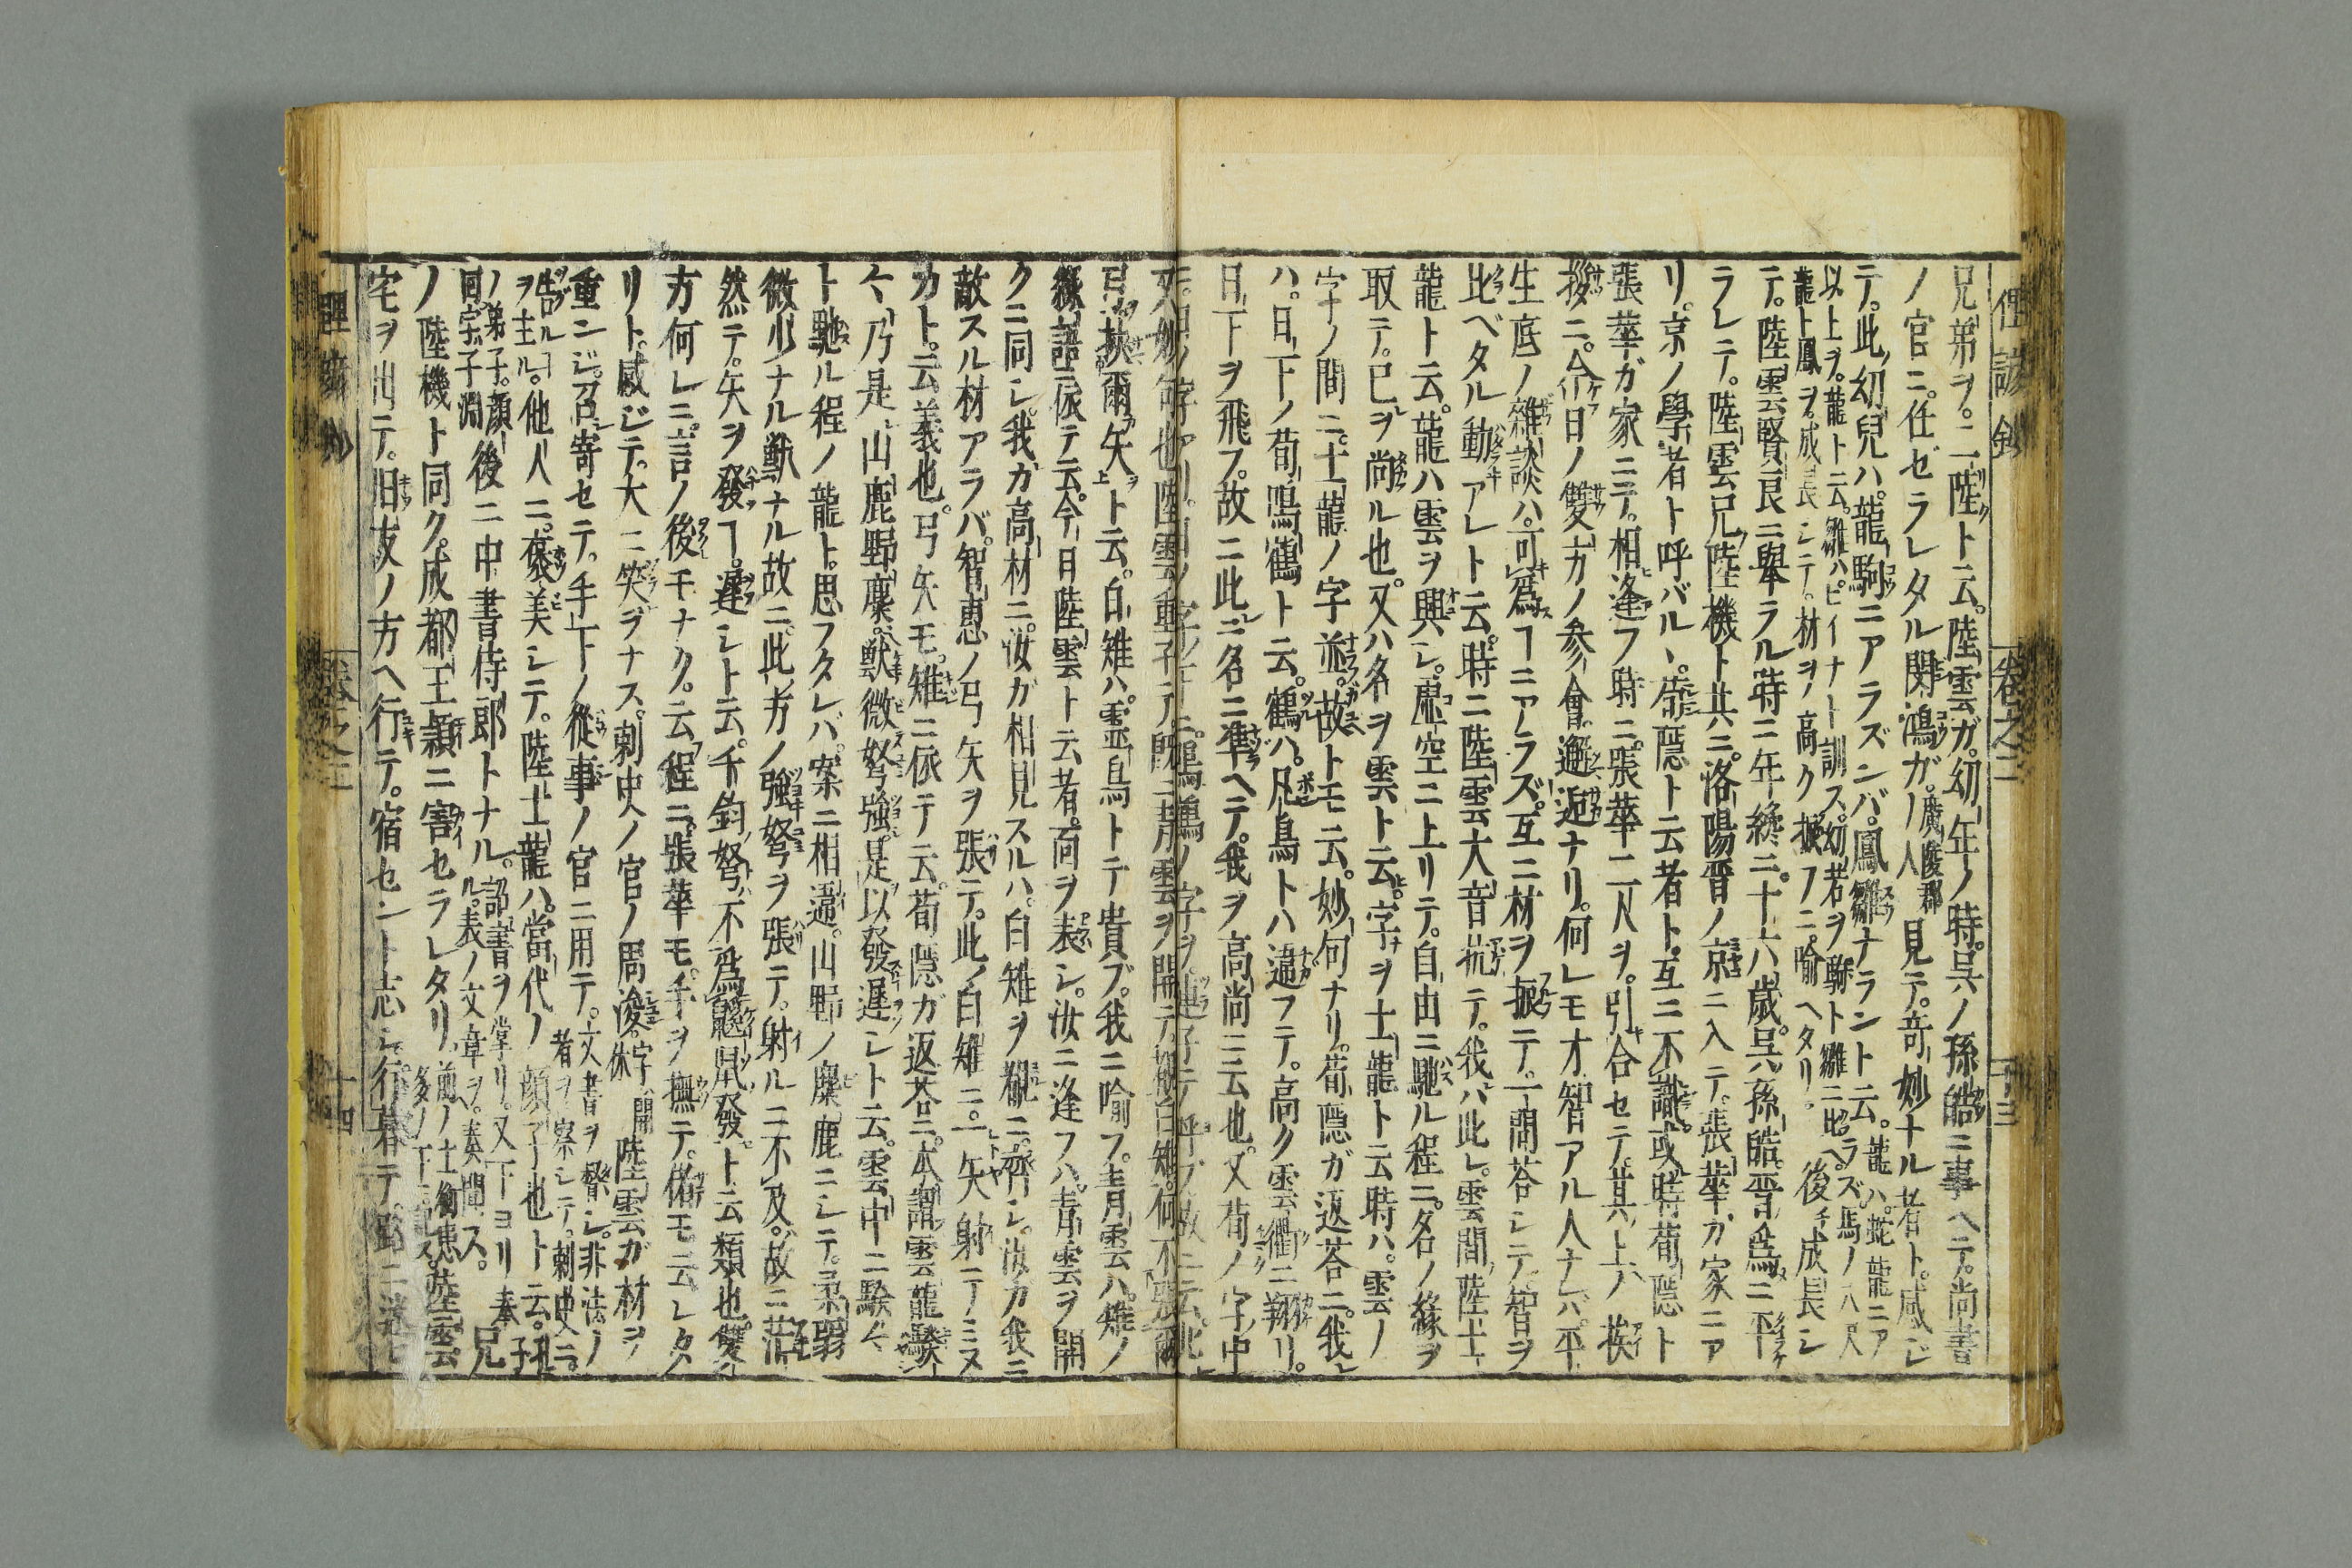 兄弟ヲ。二陸ト云。陸雲ガ。幼年ノ時。呉ノ孫皓ニ事ヘテ。尚書
ノ官ニ。任ゼラレタル閔鴻ガ。廣陵郡ノ人見テ。奇妙ナル者ト。感ジ
テ。此幼兒ハ。龍駒ニアラズンバ。鳳雛ナラント云。龍ハ。蛇龍ニア
ラズ馬ノ八尺以上ヲ。龍ト云。雛ハピイナト訓ス。幼若ヲ駒ト雛ニ比ヘ。
龍ト鳳ヲ。成長シテ。材ヲノ高ク振フニ。喩ヘタリ。後チ成長シ
テ。陸雲賢良ニ舉ラル時ニ年纔ニ。十六歳。呉孫皓。晉ノ爲ニ平
ラレテ。陸雲兄陸機ト共ニ。洛陽晉ノ京ニ入テ。張華ガ家ニア
リ。京ノ學者ト呼バル、荀隱ト云者ト。互ニ不識。或時荀隱ト
張華ガ家ニテ。相逢フ時ニ。張華二人ヲ。引合セテ。其上ノ挨
拶ニ。今日ノ雙方ノ参會。邂逅ナリ。何レモ才智アル人ナレバ。平
生底ノ雜談ハ。可爲ヿニアラズ。互ニ材ヲ振テ。一問答シテ。智ヲ
比ベタル動アレト云。時ニ陸雲大音抗テ。我ハ此レ。雲間陸士
龍ト云。龍ハ雲ヲ興シ。虚空ニ上リテ。自由ニ馳ル程ニ。名ノ縁ヲ
取テ。已ヲ尚ル也。又ハ名ヲ雲ト云。字ヲ士龍ト云時ハ。雲ノ
字ノ間ニ。士龍ノ字並。故トモ云。妙句ナリ。荀隱ガ返荅ニ。我レ
ハ。日下ノ荀鳴鶴ト云。鶴ハ。凡鳥トハ違フテ。高ク雲衢ニ翔リ。
日下ヲ飛フ。故ニ此ニ名ニ準ヘテ。我ヲ高尚ニ云也。又荀ノ字中
弓挾爾矢ト云。白雉ハ。靈鳥トテ貴ブ。我ニ喩フ。青雲ハ。雉ノ
縁語ニ依テ云。今日陸雲ト云者。面ヲ表シ。汝ニ逢フハ。青雲ヲ開
クニ同シ。我ガ高材ニ。汝ガ相見スルハ。白雉ヲ覩ニ。齊シ。汝ガ我ニ
敵スル材アラバ。智恵ノ弓矢ヲ張テ。此ノ白雉ニ。一矢射テミヌ
カト。云義也。弓矢モ。雉ニ依テ云。荀隱ガ返荅ニ。本謂雲龍騤
々。乃是山鹿野麋。獣微弩強。是以發遲シト云。雲中ニ騤々
ト馳ル程ノ龍ト。思フタレバ。案ニ相違。山野ノ麋鹿ニシテ。柔弱
微少ナル獣ナル故ニ。此方ノ強弩ヲ張テ。射ルニ不及。故ニ茫
然テ。矢ヲ發ヿ。遲シト云。千鈞弩ハ不爲鼷鼠發ト云類也。雙
方何レニ。言ノ後モナク。云程ニ。張華モ。手ヲ撫テ。偖モ云レタ
リト。感ジテ。大ニ笑ヲナス。刺史ノ官ノ周浚。字開林陸雲ガ材ヲ
重ンジ。召寄セテ。手下ノ從事ノ官ニ用テ。文書ヲ督シ。非法ノ者ヲ察シテ。刺史ニ
告ルヲ主ル。他人ニ。褒美シテ。陸士龍ハ。當代ノ顔子也ト云。孔子
ノ弟子。顔回。字子淵後ニ中書侍郎トナル。詔書ヲ掌リ。又下ヨリ奉ル。表ノ文章ヲ。奏聞ス。兄
ノ陸機ト同ク。成都王頴ニ害セラレタリ。陸雲
宅ヲ出テ。旧友ノ方ヘ行テ。宿セント志シ行暮テ。路ニ迷
俚諺鈔
卷之二
十三
俚諺鈔
卷之二
十四